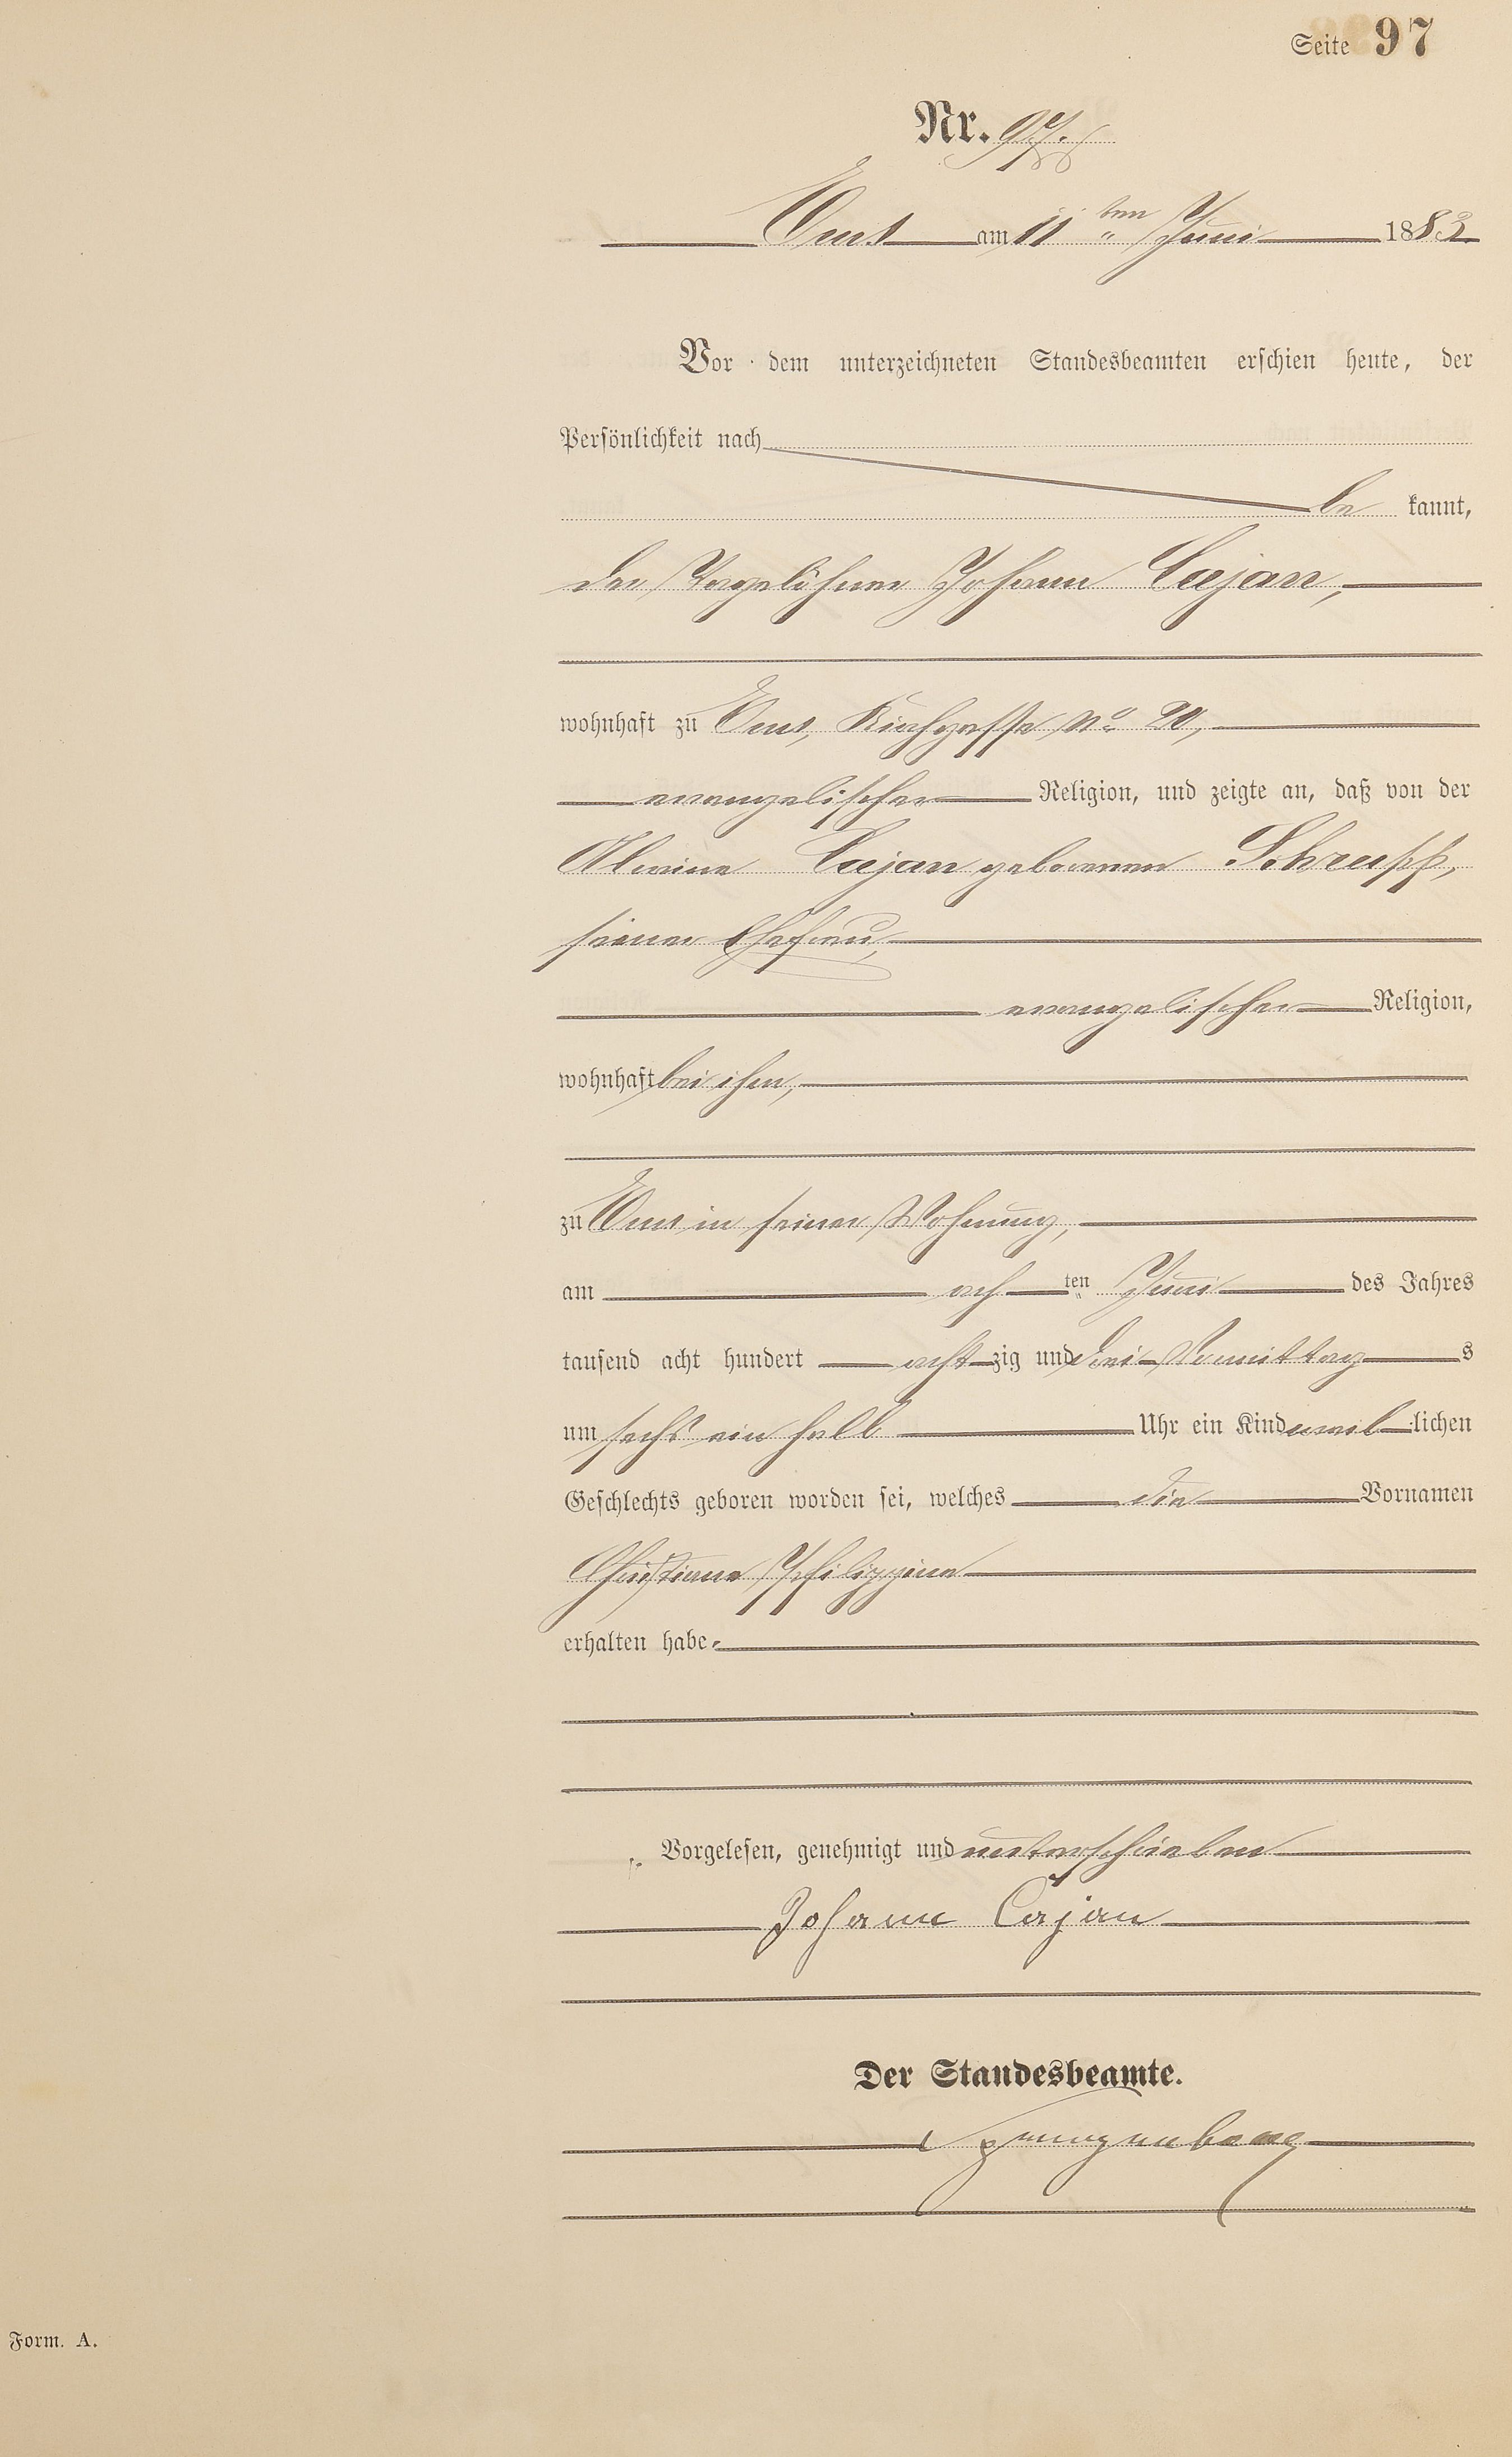 Seite 97
Nr. 97.
Ems am 11ten Juni 1883
Vor dem unterzeichneten Standesbeamten erschien heute, der
Persönlichkeit nach
be kannt,
der Tagelöhner Johann Cajan,
wohnhaft zu Ems, Kirchgasse No 20,
evangelischer Religion, und zeigte an, daß von der
Alwine Cajan geborenen Schrupp,
seiner Ehefrau,
evangelischer Religion,
wohnhaft bei ihm,
zu Ems in seiner Wohnung,
am ach ten Juni des Jahres
tausend acht hundert acht zig und drei Vormittag s
um sechs ein halb Uhr ein Kind weib lichen
Geschlechts geboren worden sei, welches die Vornamen
Christiane Philippine
erhalten habe.
Vorgelesen, genehmigt und unterschrieben
Johann Cajan
Der Standesbeamte.
Form. A.